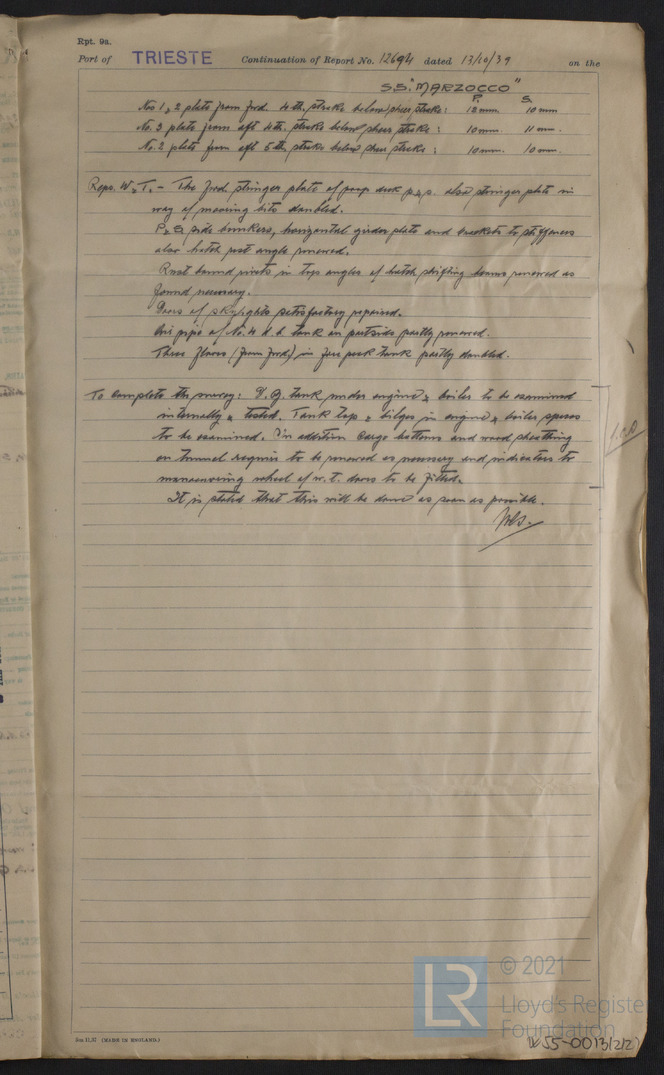 Rpt. 9a.
Port of TRIESTE Continuation of Report No. 12694 dated 13/10/39 on the
S.S. "MARZOCCO"
P. S.
No 1, 2 plate from fwd. 4th. strake below sheer strake: 12 mm 10 mm
No. 3 plate from aft 4th. strake below sheer strake: 10 mm. 11 mm.
No. 2 plate from aft 5th. strake below sheer strake: 10 mm. 10 mm.
Reps. W. T. - The fwd. stringer plate of poop deck p & s. also stringer plate in
way of mooring bits doubled.
P. & S. side bunkers, horizontal girder plate and brackets to stiffeners
also hatch post angle renewed.
Rust bound rivets in top angles of hatch shifting beams renewed as
found necessary.
Doors of skylights satisfactory repaired.
Air pipe of No. 4 d. b. tank on portside partly renewed.
Three floors (from fwd.) in fore peak tank partly doubled.
To complete the survey: D. B. tank under engine & boiler to be examined
internally & tested. Tank top & bilges in engine & boiler spaces
to be examined. In addition cargo battens and wood sheathing
on tunnel to be renewed as necessary and indicators to
manoeuvring wheel of w. t. doors to be fitted.
It is stated that this will be done as soon as possible.
© 2021
LR
Lloyd's Register
Foundation
(MADE IN ENGLAND.)
W55-0013(2/2)